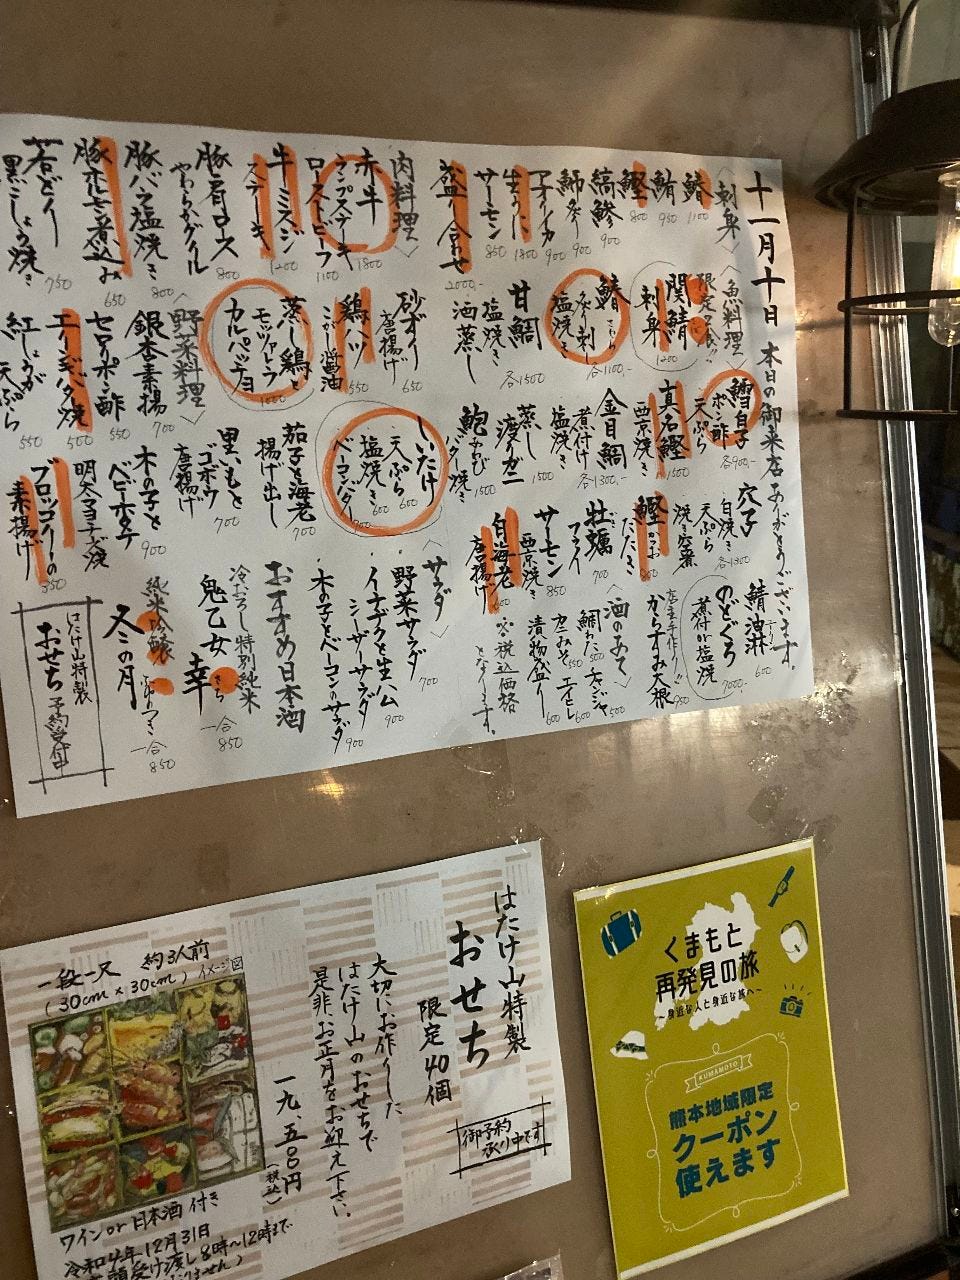 十一月十日 本日の御来店ありがとうございます。
〈刺身〉
鰆 1100
鮪 950
鰹 800
縞鯵 900
鰤 900
アオリイカ 900
生うに 1800
サーモン 850
盛り合わせ 2000-
〈魚料理〉
限定5食!!
関鯖 刺身 1200
鰆 さわら
塩焼き
各1100-
甘鯛
塩焼き
酒蒸し
各1500
鱈白子
ポン酢
天ぷら
各900-
真名鰹
西京焼き 1500
金目鯛
煮付け
塩焼き
各1300-
蒸し渡りガニ 1500
鮑 あわび
バター焼き 1500
穴子
白焼き
天ぷら
各1300
鰹 かつお
たたき
牡蠣
フライ 700
サーモン
西京焼き 850
白海老
唐揚げ 600
鯖油淋 600
のどぐろ
煮付か塩焼 7000-
店主手作り!!
からすみ大根 950
〈酒のあて〉
鯛わた 500
チャンジャ 500
カニみそ 550
エイヒレ 600
漬物盛り 600
※税込価格となります。
〈肉料理〉
赤牛
ランプステーキ 1800
ローストビーフ 1100
牛ミスジ
ステーキ 1200
豚肩ロース
やわらかグリル 800
豚バラ塩焼き 800
豚ホルモン煮込み 650
若どり
黒こしょう焼き 750
砂ずり
唐揚げ 650
鶏ハツ
こがし醤油 550
蒸し鶏と
モッツァレラ
カルパッチョ 1000
〈野菜料理〉
銀杏素揚 700
セロリポン酢 550
エリンギバター焼 500
紅しょうが
天ぷら 550
しいたけ
天ぷら 600
塩焼き 600
ベーコンバター 700
茄子と海老
揚げ出し
里いもと
ゴボウ
唐揚げ 700
木の子と
ベビーホタテ 900
明太マヨネーズ焼
ブロッコリーの
素揚げ 550
〈サラダ〉
・野菜サラダ 700
・イチヂクと生ハム
シーザーサラダ 900
・木の子とベーコンのサラダ 900
おすすめ日本酒
冷おろし特別純米
鬼乙女 幸 さち 一合850
純米吟醸
冬の月 ふゆのつき 一合850
はたけ山特製
おせち 予約受付中
はたけ山特製
おせち
限定40個
御予約
承り中です
大切にお作りした
はたけ山のおせちで
是非、お正月をお迎え下さい。
一九、五〇〇円
(税込)
一段一尺 約3人前
(30cm×30cm) イメージ図
ワインor日本酒付き
令和4年12月31日
店頭受け渡し8時〜12時まで
くまもと
再発見の旅
〜身近な人と身近な旅へ〜
KUMAMOTO
熊本地域限定
クーポン
使えます